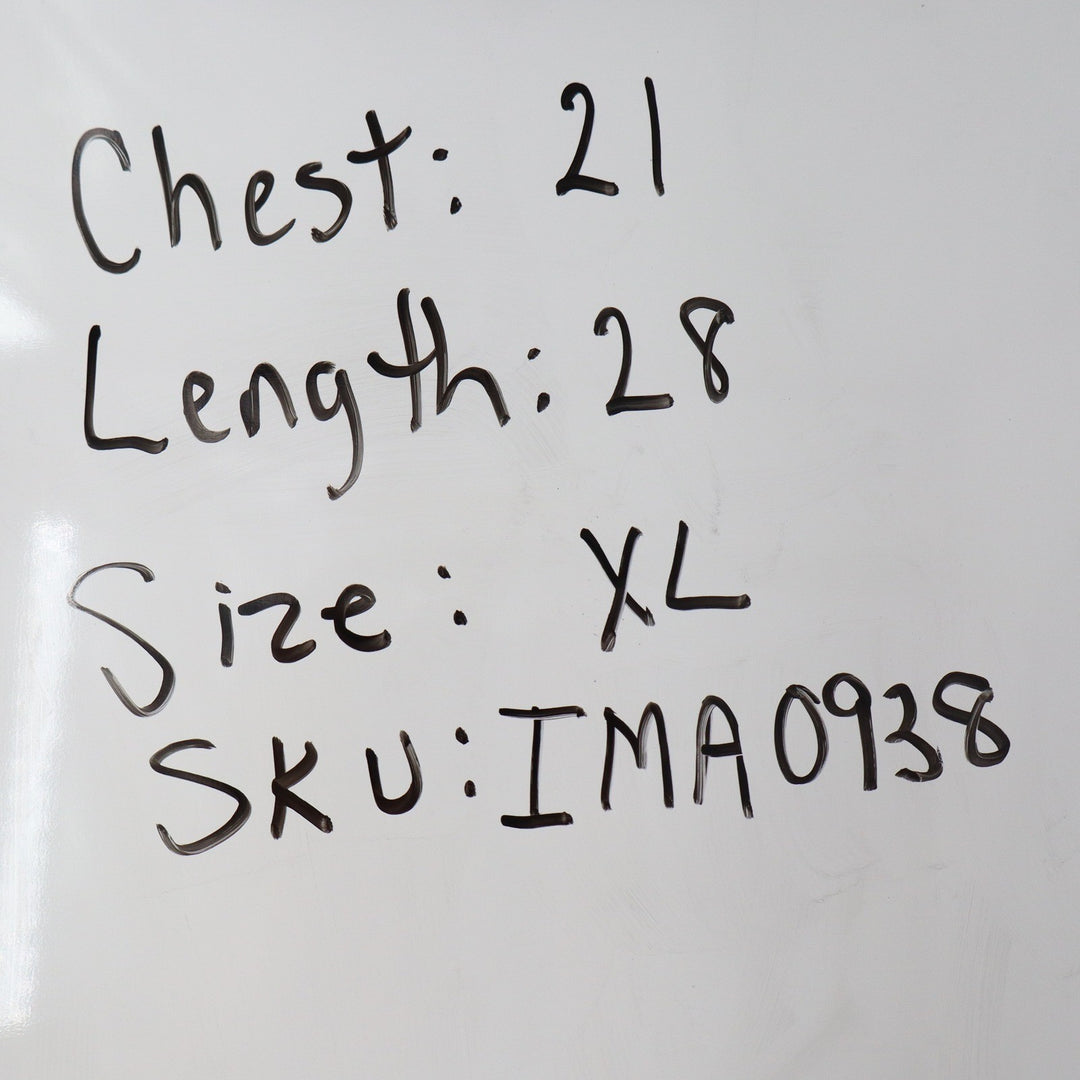 Chest: 21
Length: 28
Size: XL
SKU: IMA0938